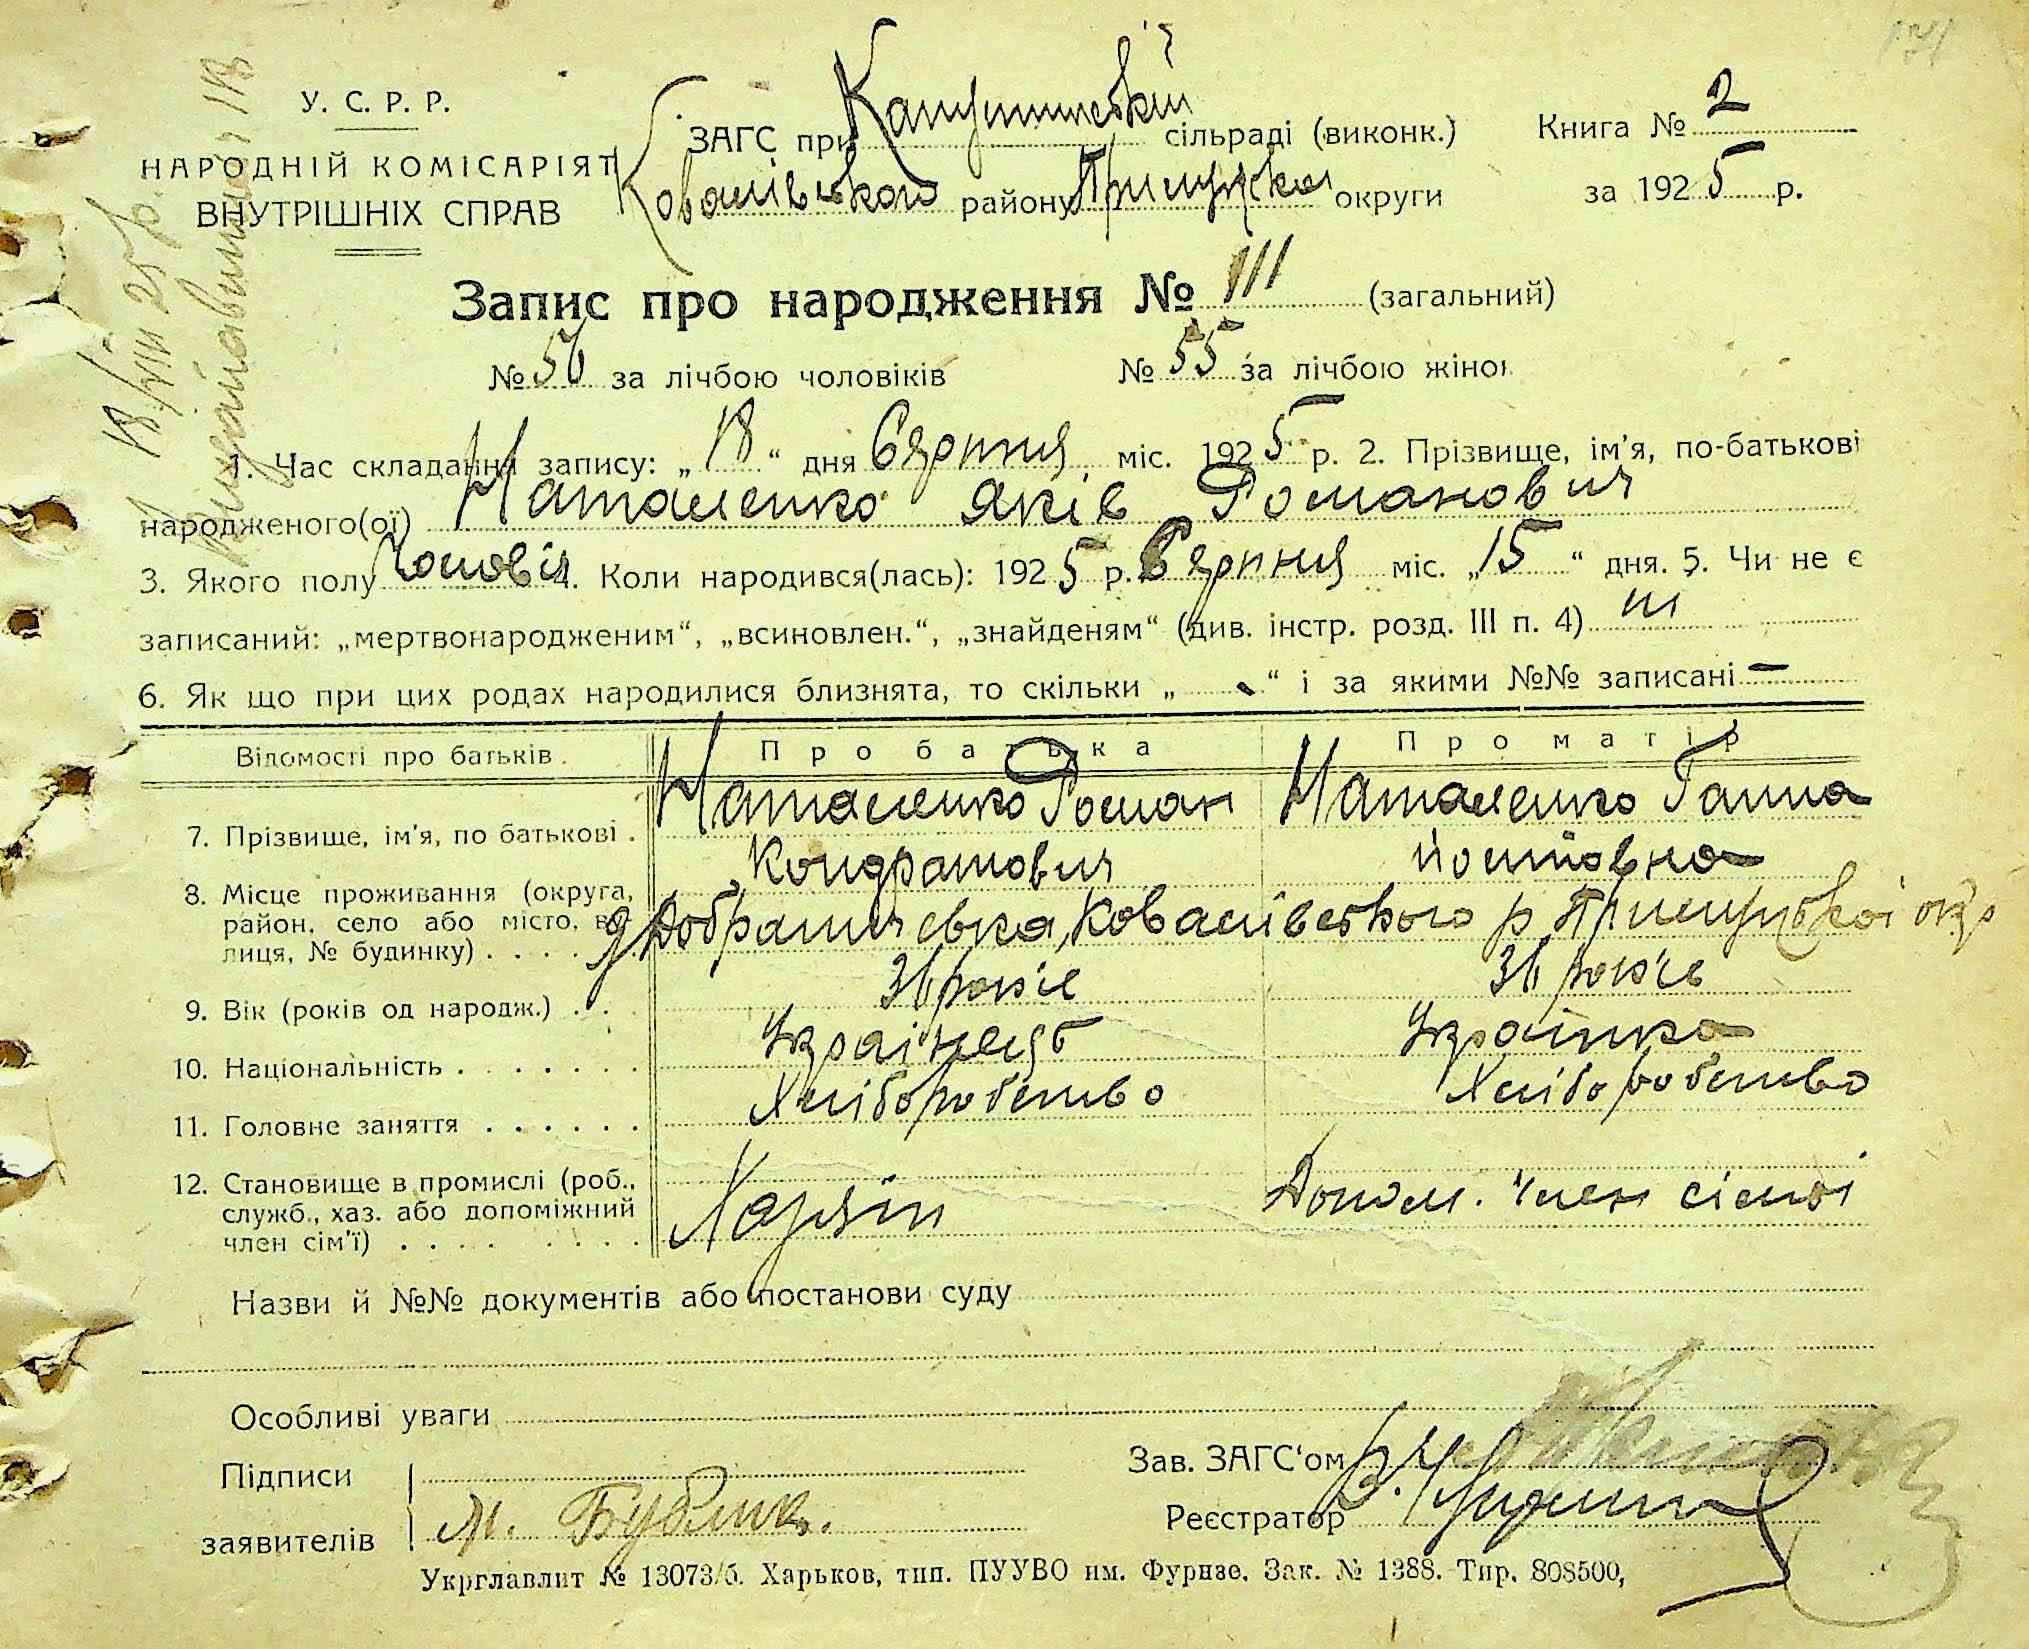 У. С. Р. Р.
НАРОДНІЙ КОМІСАРІЯТ
ВНУТРІШНІХ СПРАВ
ЗАГС при сільраді (виконк.)
Ковалівського району Прилуцької округи
Книга № 2
за 1925 р.
Запис про народження № 111 (загальний)
№ 56 за лічбою чоловіків № 55 за лічбою жінок
1. Час складання запису: „18“ дня Серпня міс. 1925 р. 2. Прізвище, ім'я, по-батькові
народженого(ої) Наталенко Яків Романович
3. Якого полу Чоловіч 4. Коли народився(лась): 1925 р. Серпня міс. „15“ дня. 5. Чи не є
записаний: „мертвонародженим“, „всиновлен.“, „знайденям“ (див. інстр. розд. III п. 4) ні
6. Як що при цих родах народилися близнята, то скільки „ - “ і за якими №№ записані —
Відомості про батьків Про батька Про матір
7. Прізвище, ім'я, по батькові . Наталенко Роман Наталенко Ганна
Кондратович
8. Місце проживання (округа,
район, село або місто, ву-
лиця, № будинку) . . . . Ковалівського р Прилуцької окр
9. Вік (років од народж.) . . 36 років 36 років
10. Національність . . . . . . . Українець Українка
11. Головне заняття . . . . . . Хліборобство Хліборобство
12. Становище в промислі (роб.,
служб., хаз. або допоміжний
член сім'ї) . . . . . . . . Хазяїн Допом. член сімї
Назви й №№ документів або постанови суду
Особливі уваги
Підписи
заявителів М. Бублик.
Зав. ЗАГС'ом
Реєстратор
Укрглавлит № 13073/б. Харьков, тип. ПУУВО им. Фурнзе. Зак. № 1388. Тир. 808500,